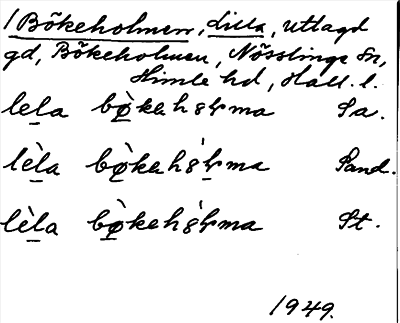 / Bökeholmen, Lilla, utlagd
gd, Bökeholmen, Nösslinge sn,
Himle hd, Hall. l.
lela bø̀kehɞl̀ma Sa.
lèla bø̀kehɞl̀ma Sand.
lèla bø̀kehɞl̀ma St.
1949.